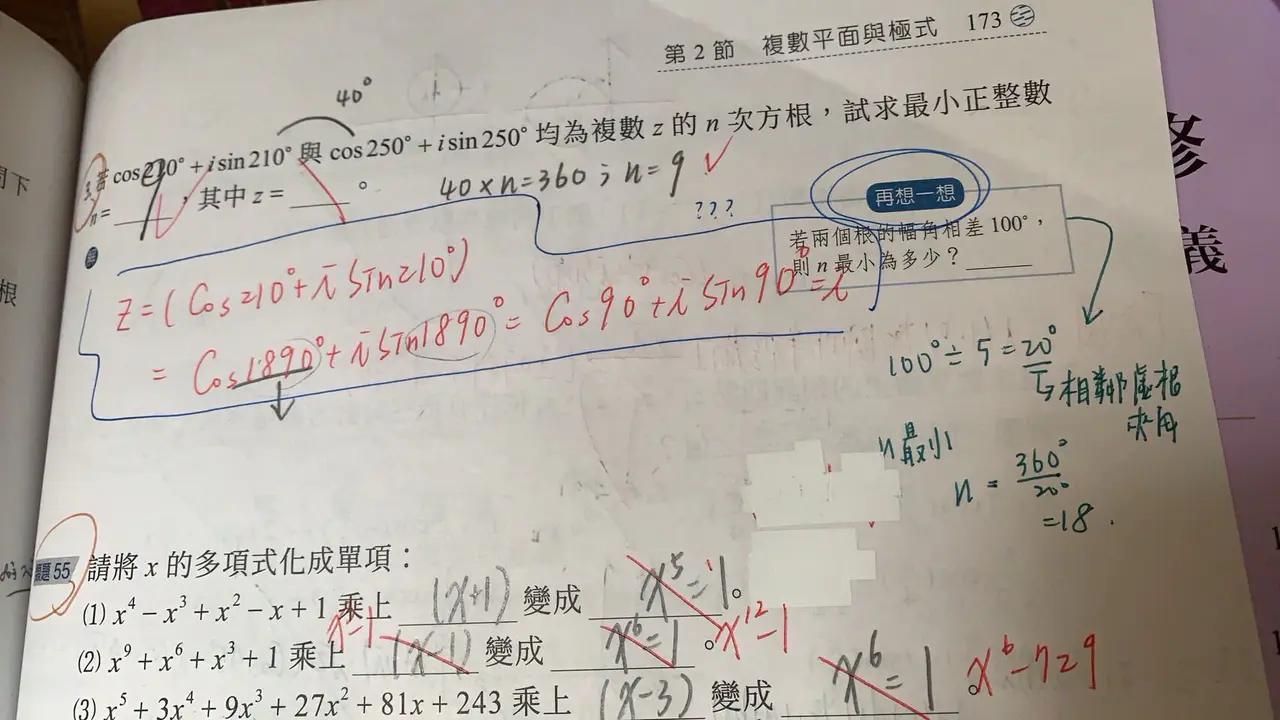 第 2 節 複數平面與極式 173
40°
若 cos210° + i sin210° 與 cos250° + i sin250° 均為複數 z 的 n 次方根，試求最小正整數
n = 9 ，其中 z = ______ 。
40×n=360；n=9 ✓
???
再想一想
若兩個根的幅角相差 100°，
則 n 最小為多少？______
Z=(Cos210°+i Sin210°)
= Cos1890°+i Sin1890° = Cos90°+i Sin90° = i
100° ÷ 5 = 20°
相鄰虛根
夾角
n最小
n = 360°/20°
=18.
55 請將 x 的多項式化成單項：
(1) x⁴ − x³ + x² − x + 1 乘上 (x+1) 變成 x⁵=1。
(2) x⁹ + x⁶ + x³ + 1 乘上 (x-1) 變成 x⁶=1。 x¹²-1
(3) x⁵ + 3x⁴ + 9x³ + 27x² + 81x + 243 乘上 (x-3) 變成 x⁶=1 x⁶-729
修
義